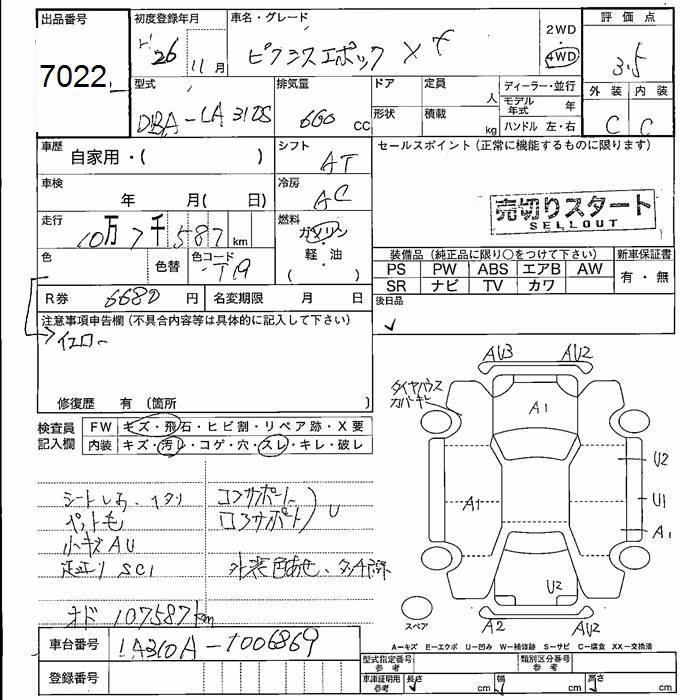 出品番号
7022
初度登録年月
H 26 11月
車名・グレード
ピクシスエポック Xf
2WD
4WD
評価点
3.5
外装 内装
C C
型式
DBA-LA310S
排気量
660 cc
ドア
形状
定員
人
積載
kg
ディーラー・並行
モデル年式 年
ハンドル 左・右
車歴
自家用・( )
シフト
AT
セールスポイント (正常に機能するものに限ります)
車検
年 月( 日)
冷房
AC
売切りスタート
SELLOUT
走行
10万7千587km
燃料
ガソリン
・
軽・油
( )
色
色替
色コード
T19
装備品 (純正品に限り○をつけて下さい)
新車保証書
PS PW ABS エアB AW
SR ナビ TV カワ
有・無
R券 6680円
名変期限 月 日
後日品
注意事項申告欄 (不具合内容等は具体的に記入して下さい)
イエロー
修復歴 有 (箇所 )
検査員
記入欄
FW キズ・飛石・ヒビ割・リペア跡・X要
内装 キズ・汚レ・コゲ・穴・スレ・キレ・破レ
AU3 AU2
タイヤハウス
カバーキレ
A1
U2
A1
U1
A1
U2
A2 AU2
スペア
シートしみ、ヘタリ
ペット毛
小キズAU
足廻りSC1
コアサポート
ロアサポート
U
外装色あせ、
オド 107587km
A-キズ E-エクボ U-凹み W-補修跡 S-サビ C-腐食 XX-交換済
車台番号
LA310A-1006869
登録番号
型式指定番号
参考
類別区分番号
参考
車庫証明用
参考
長さ cm 幅 cm 高さ cm